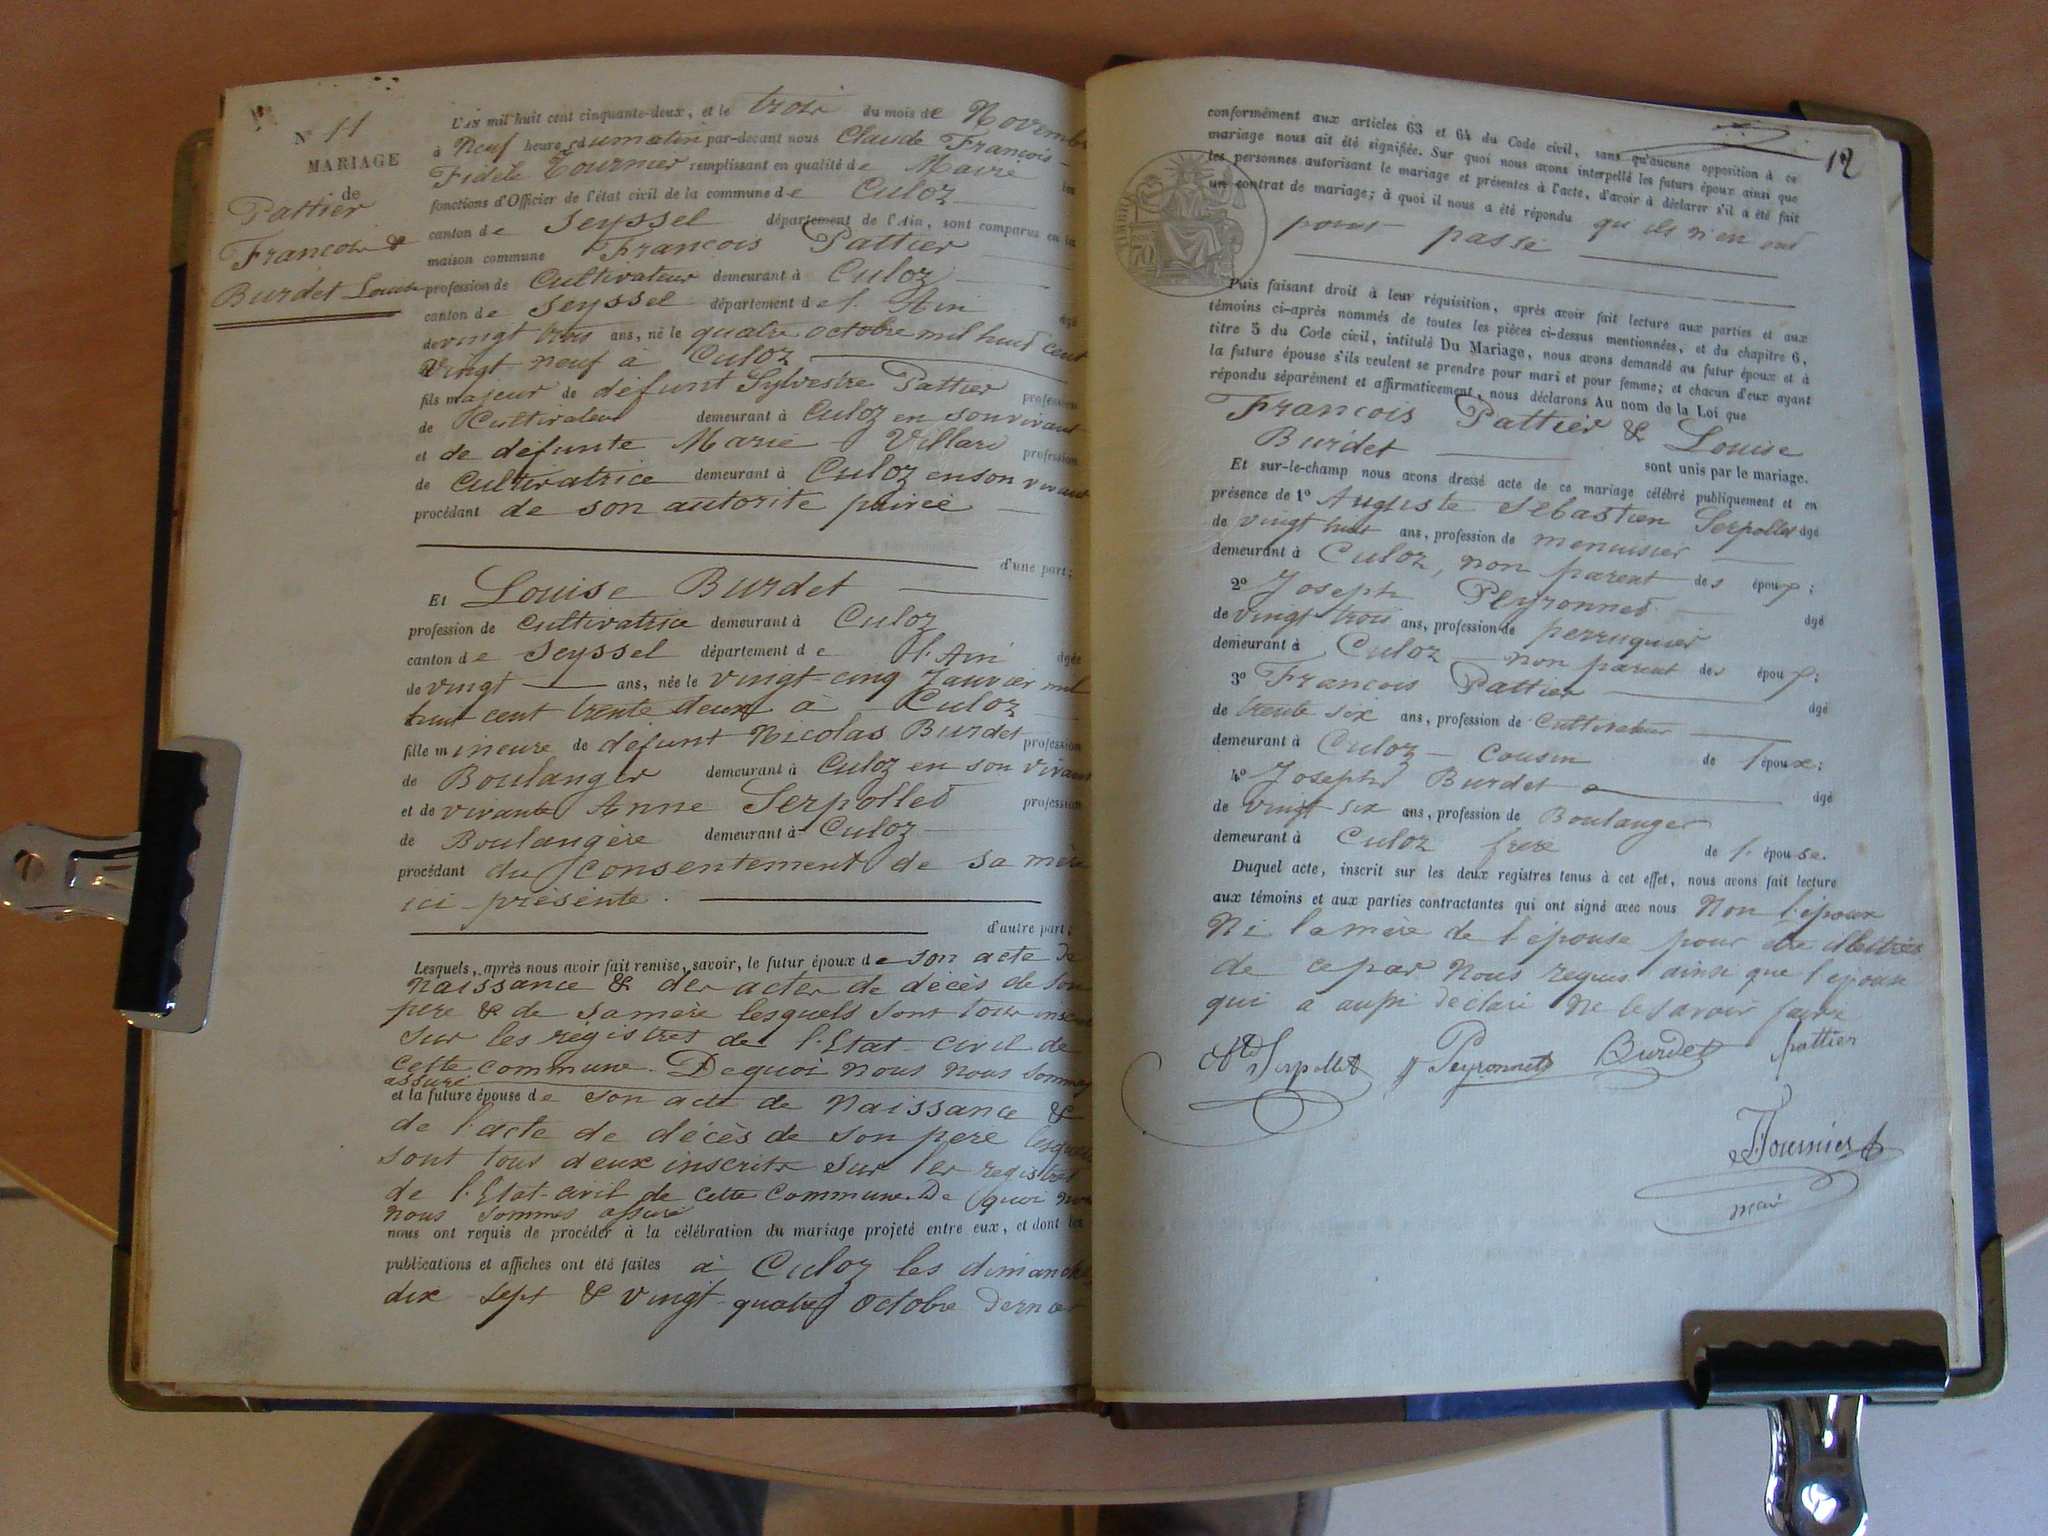 N° 11
MARIAGE
de
Pattier
Francois &
Burdet Louise
L'AN mil huit cent cinquante-deux, et le trois du mois de Novembre
à Neuf heures du matin par-devant nous Claude François
Fidèle Tournier remplissant en qualité de Maire les
fonctions d'Officier de l'état civil de la commune de Culoz
canton de Seyssel département de l'Ain, sont comparus en la
maison commune Francois Pattier
profession de Cultivateur demeurant à Culoz
canton de Seyssel département de l'Ain âgé
de vingt trois ans, né le quatre octobre mil huit cent
vingt neuf à Culoz
fils majeur de défunt Sylvestre Pattier profession
de Cultivateur demeurant à Culoz en son vivant
et de défunte Marie Villard profession
de Cultivatrice demeurant à Culoz en son vivant
procédant de son autorité privée
d'une part;
Et Louise Burdet
profession de Cultivatrice demeurant à Culoz
canton de Seyssel département de l'Ain âgée
de vingt ans, née le vingt-cinq Janvier mil
huit cent trente deux à Culoz
fille mineure de défunt Nicolas Burdet profession
de Boulanger demeurant à Culoz en son vivant
et de vivante Anne Serpollet profession
de Boulangère demeurant à Culoz
procédant du consentement de sa mère
ici présente.
d'autre part;
Lesquels, après nous avoir fait remise, savoir, le futur époux de son acte de
Naissance & des actes de décès de son
père & de sa mère lesquels sont tous inscrits
sur les régistres de l'Etat-civil de
cette commune. De quoi nous nous sommes
assuré
et la future épouse de son acte de Naissance &
de l'acte de décès de son père lesquels
sont tous deux inscrits sur les registres
de l'Etat-civil de cette commune. De quoi nous
nous sommes assuré
nous ont requis de procéder à la célébration du mariage projeté entre eux, et dont les
publications et affiches ont été faites à Culoz les dimanches
dix sept & vingt-quatre octobre dernier
12
conformément aux articles 63 et 64 du Code civil, sans qu'aucune opposition à ce
mariage nous ait été signifiée. Sur quoi nous avons interpellé les futurs époux ainsi que
les personnes autorisant le mariage et présentes à l'acte, d'avoir à déclarer s'il a été fait
un contrat de mariage; à quoi il nous a été répondu qu'ils n'en ont
point passé
Puis faisant droit à leur réquisition, après avoir fait lecture aux parties et aux
témoins ci-après nommés de toutes les pièces ci-dessus mentionnées, et du chapitre 6,
titre 5 du Code civil, intitulé Du Mariage, nous avons demandé au futur époux et à
la future épouse s'ils veulent se prendre pour mari et pour femme; et chacun d'eux ayant
répondu séparément et affirmativement, nous déclarons Au nom de la Loi que
Francois Pattier & Louise
Burdet sont unis par le mariage.
Et sur-le-champ nous avons dressé acte de ce mariage célébré publiquement et en
présence de 1° Auguste Sébastien Serpollet âgé
de vingt huit ans, profession de menuisier
demeurant à Culoz, non parent des époux;
2° Joseph Peyronnet âgé
de vingt trois ans, profession de perruquier
demeurant à Culoz non parent des époux;
3° Francois Pattier âgé
de trente six ans, profession de Cultivateur
demeurant à Culoz - cousin de l'époux;
4° Joseph Burdet âgé
de vingt six ans, profession de Boulanger
demeurant à Culoz frere de l'épouse.
Duquel acte, inscrit sur les deux registres tenus à cet effet, nous avons fait lecture
aux témoins et aux parties contractantes qui ont signé avec nous Non l'épouse
Ni la mère de l'épouse pour être illettrées
de ce par nous requis ainsi que l'époux
qui a aussi déclaré ne le savoir faire
Serpollet J Peyronnet Burdet pattier
Tournier
mair